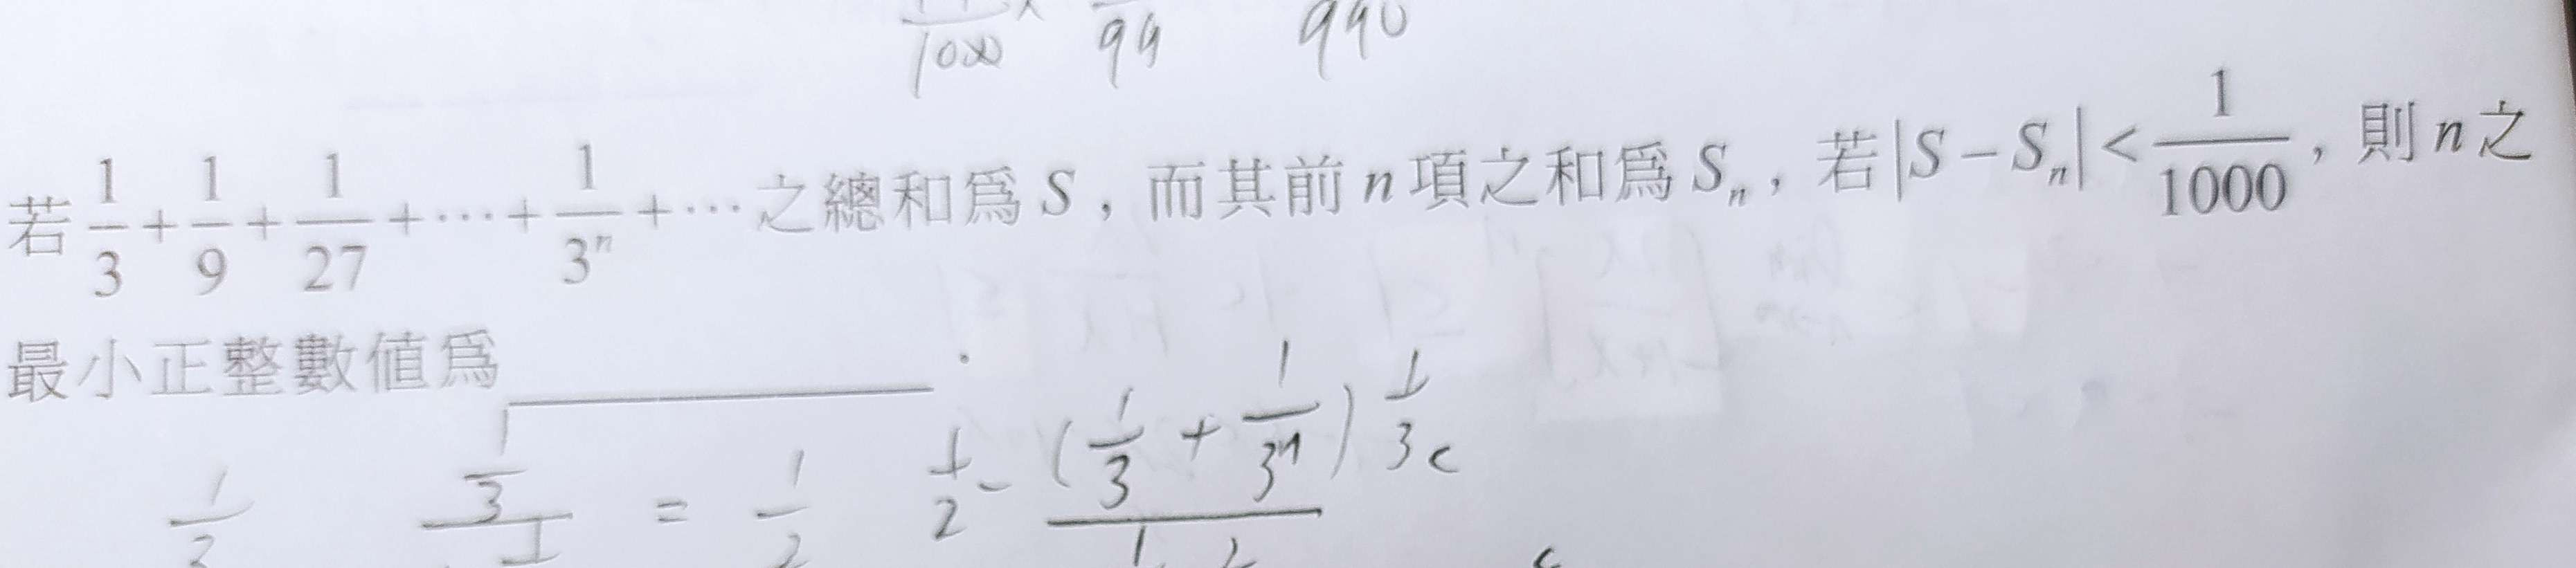 1000 × 99 990
若 1/3 + 1/9 + 1/27 + ⋯ + 1/3ⁿ + ⋯ 之總和爲 S，而其前 n 項之和爲 Sₙ，若 |S − Sₙ| < 1/1000，則 n 之
最小正整數值爲________．
1/2 1/3 = 1/2 1/2 - (1/3 + 1/3ⁿ) 1/3